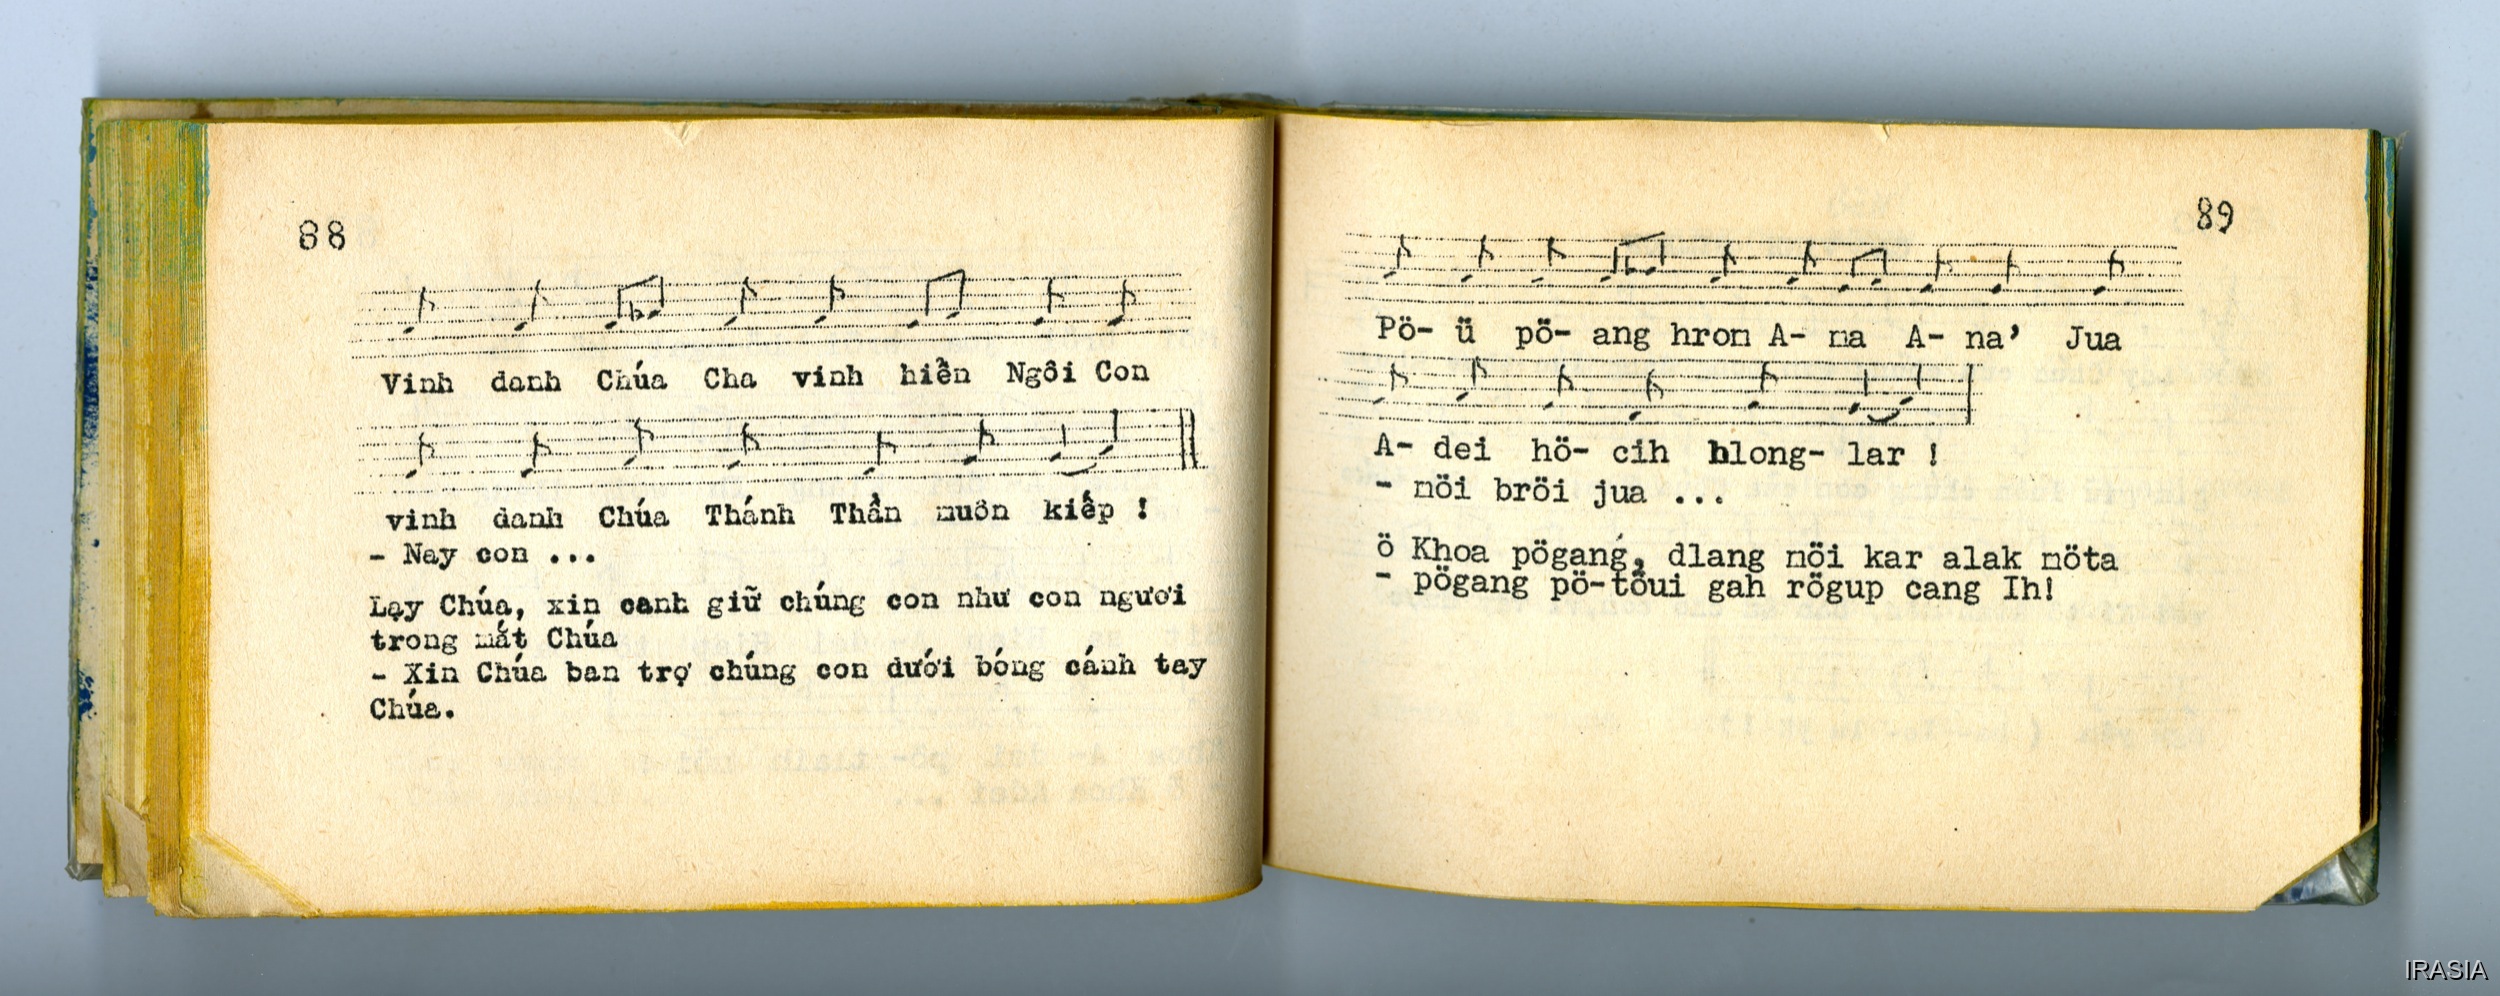 88
Vinh danh Chúa Cha vinh hiển Ngôi Con
vinh danh Chúa Thánh Thần muôn kiếp !
- Nay con ...
Lạy Chúa, xin canh giữ chúng con như con ngươi
trong mắt Chúa
- Xin Chúa ban trợ chúng con dưới bóng cánh tay
Chúa.
89
Pö- ü pö- ang hron A- na A- na' Jua
A- dei hö- cih hlong- lar !
- nöi bröi jua ...
ö Khoa pögang, dlang nöi kar alak möta
- pögang pö-tôui gah rögup cang Ih!
IRASIA